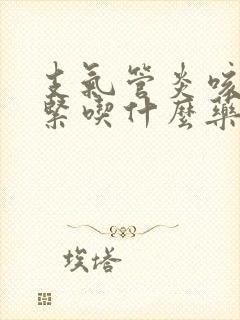 支氣管炎咳
緊喫什麼藥
埃塔